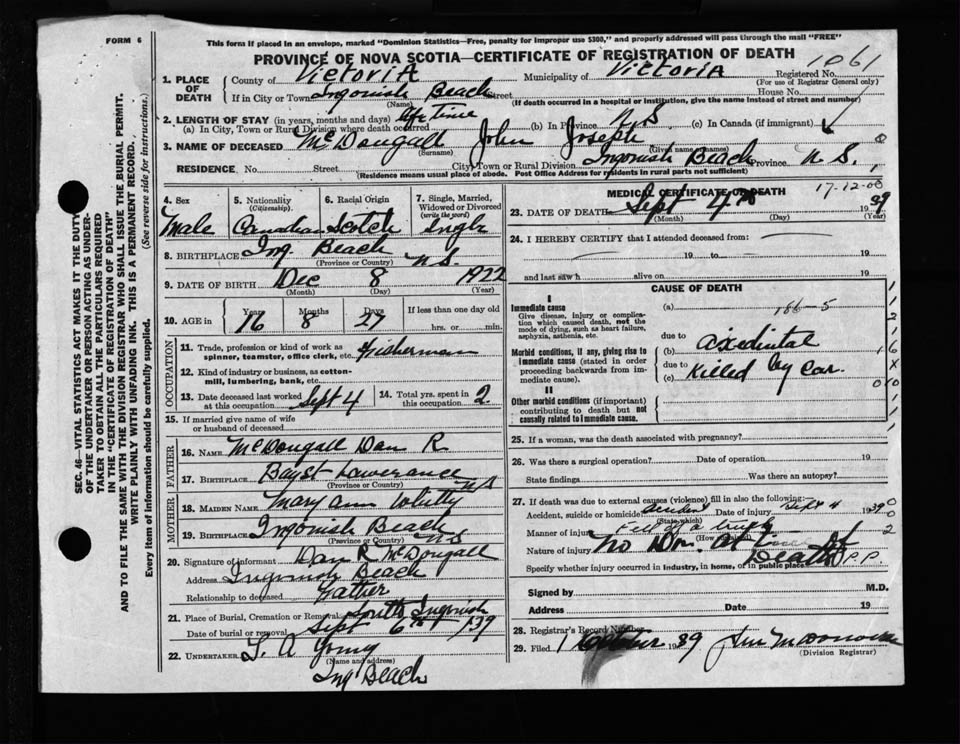 FORM 6
This form if placed in an envelope, marked "Dominion Statistics—Free, penalty for improper use $300," and properly addressed will pass through the mail "FREE"
PROVINCE OF NOVA SCOTIA—CERTIFICATE OF REGISTRATION OF DEATH
1061
1. PLACE OF DEATH
County of Victoria Municipality of Victoria Registered No.
(For use of Registrar General only)
If in City or Town Ingonish Beach Street House No.
(Name) (If death occurred in a hospital or institution, give the name instead of street and number)
2. LENGTH OF STAY (in years, months and days)
(a) In City, Town or Rural Division where death occurred life time (b) In Province N.S (c) In Canada (if immigrant)
3. NAME OF DECEASED McDougall John Joseph
(Surname) (Given name or names)
RESIDENCE. No. Street City Town or Rural Division Ingonish Beach Province N.S.
(Residence means usual place of abode. Post Office Address for residents in rural parts not sufficient)
4. Sex
Male
5. Nationality
(Citizenship)
Canadian
6. Racial Origin
Scotch
7. Single, Married, Widowed or Divorced
(write the word)
Single
8. BIRTHPLACE Ing Beach N.S.
(Province or Country)
9. DATE OF BIRTH Dec 8 1922
(Month) (Day) (Year)
10. AGE in Years Months Days If less than one day old
16 8 27 hrs. or min.
OCCUPATION
11. Trade, profession or kind of work as spinner, teamster, office clerk, etc. Fisherman
12. Kind of industry or business, as cotton-mill, lumbering, bank, etc.
13. Date deceased last worked at this occupation Sept 4
14. Total yrs. spent in this occupation 2
15. If married give name of wife or husband of deceased
FATHER
16. NAME McDougall Dan R
17. BIRTHPLACE Bay St Lawerance NS
(Province or Country)
MOTHER
18. MAIDEN NAME Mary Ann Whitty
19. BIRTHPLACE Ingonish Beach NS
(Province or Country)
20. Signature of informant Dan R McDougall
Address Ingonish Beach
Relationship to deceased Father
21. Place of Burial, Cremation or Removal South Ingonish
Date of burial or removal Sept 6th 1939
22. UNDERTAKER
(Name and address)
Ing Beach
MEDICAL CERTIFICATE OF DEATH
17-12-08
23. DATE OF DEATH Sept 4th 1939
(Month) (Day)
24. I HEREBY CERTIFY that I attended deceased from:
19 to 19
and last saw h alive on 19
CAUSE OF DEATH
I
Immediate cause
Give disease, injury or complication which caused death, not the mode of dying, such as heart failure, asphyxia, asthenia, etc.
Morbid conditions, if any, giving rise to immediate cause (stated in order proceeding backwards from immediate cause).
II
Other morbid conditions (if important) contributing to death but not causally related to immediate cause.
(a) 186-5
due to
(b) axidintal
due to
(c) Killed by car.
25. If a woman, was the death associated with pregnancy?
26. Was there a surgical operation? Date of operation 19
State findings Was there an autopsy?
27. If death was due to external causes (violence) fill in also the following:—
Accident, suicide or homicide? accident Date of injury Sept 4 1939
(State which)
Manner of injury Fell off a truck
(How sustained)
Nature of injury No Dr. At Death P.P.
Specify whether injury occurred in industry, in home, or in public place
Signed by M.D.
Address Date 19
28. Registrar's Record Number
29. Filed 1 October 1939
(Division Registrar)
SEC. 46—VITAL STATISTICS ACT MAKES IT THE DUTY OF THE UNDERTAKER OR PERSON ACTING AS UNDERTAKER TO OBTAIN ALL THE PARTICULARS REQUIRED IN THE "CERTIFICATE OF REGISTRATION OF DEATH"
AND TO FILE THE SAME WITH THE DIVISION REGISTRAR WHO SHALL ISSUE THE BURIAL PERMIT.
WRITE PLAINLY WITH UNFADING INK. THIS IS A PERMANENT RECORD.
Every item of information should be carefully supplied. (See reverse side for instructions.)